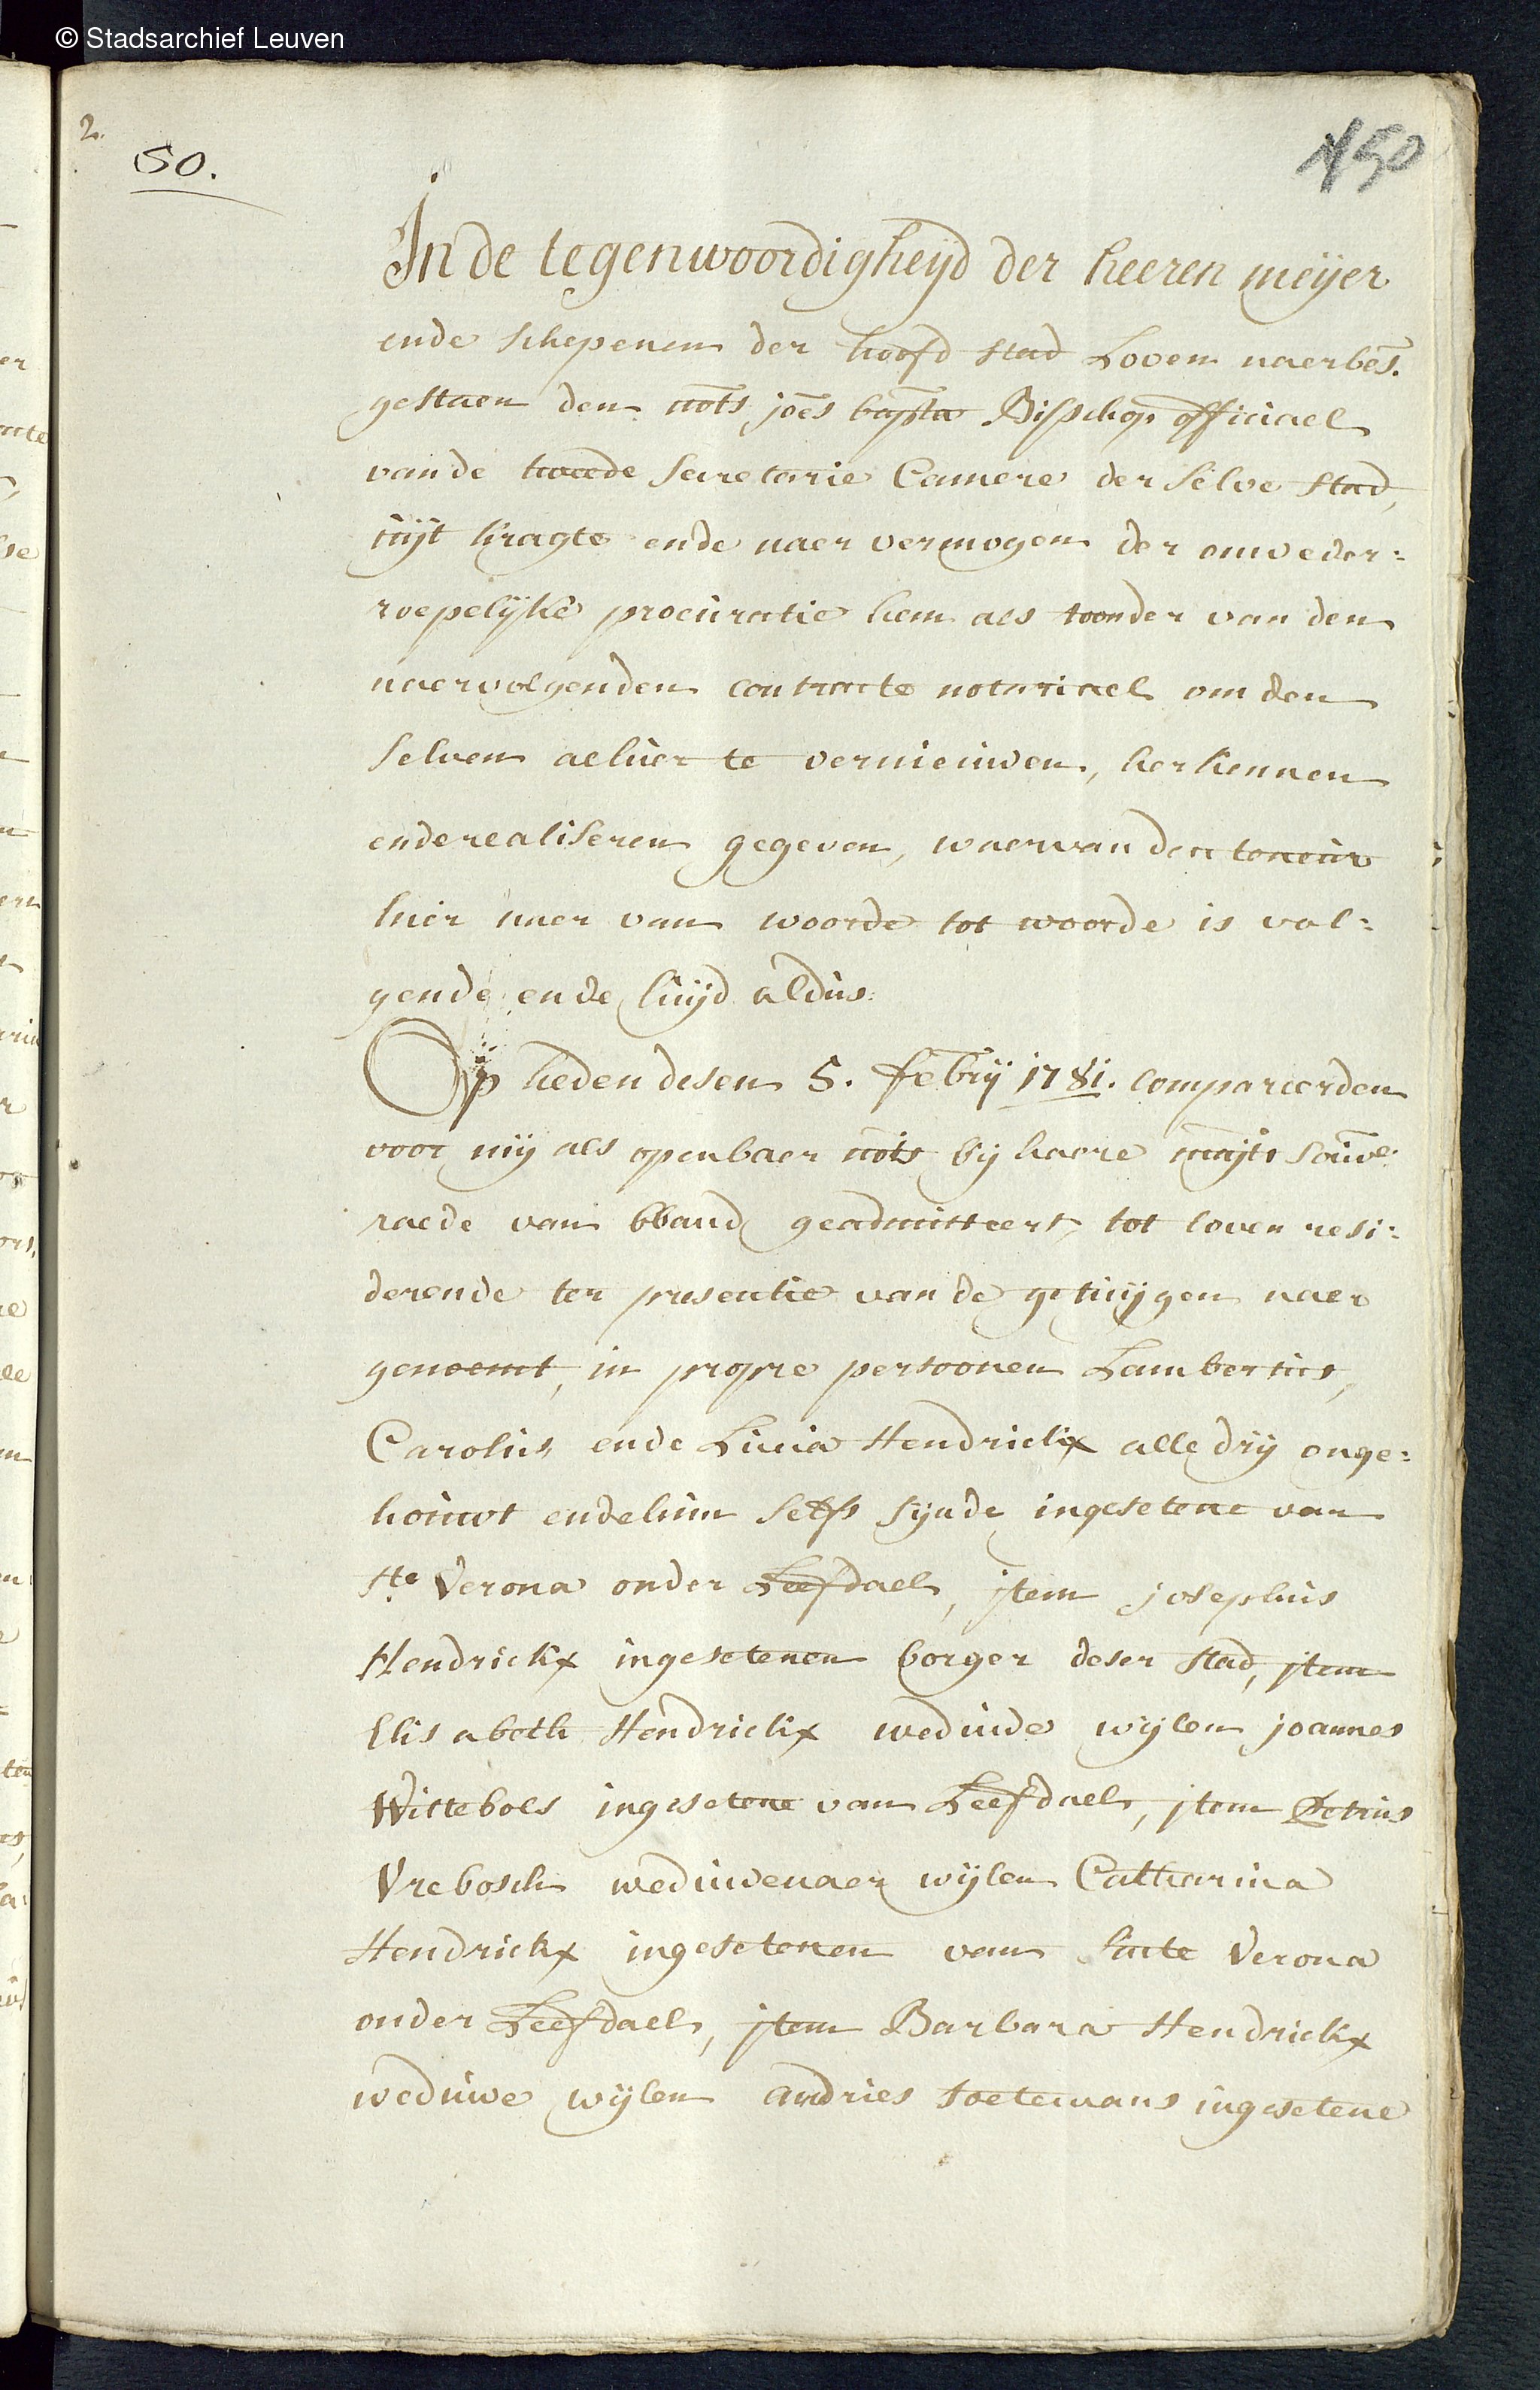 © Stadsarchief Leuven
2.
50.
50
In de tegenwoordigheyd der heeren meyer
ende schepenen der hoofd stad Loven naerbes.
gestaen den nots joes bapta Bisschop officiael
vande tweede secretarie Camere der selve stad,
uijt kragte ende naer vermogen der onweder:
roepelijke procuratie hem als toonder van den
naervolgenden contracte notariael om den
selven alhier te vernieuwen, herkennen
ende realiseren gegeven, waervan den teneur
hier naer van woorde tot woorde is vol:
gende ende luijd aldus:
Op heden desen 5. febrij 1781. compareerden
voor mij als openbaer nots bij haere majts souve.
raede van bband geadmitteert, tot loven resi:
derende ter presentie van de getuijgen naer
genoemt, in propre persoonen Lambertus,
Carolus ende Lucia Hendrickx alle drij onge:
houwt ende hun selfs sijnde ingesetene van
Ste Verona onder Leefdael, item josephus
Hendrickx ingesetenen borger deser stad, item
Elisabeth Hendrickx weduwe wijlen joannes
Wittebols ingesetene van Leefdael, item Petrus
Vrebosch weduwenaer wijlen Catharina
Hendrickx ingesetenen van Sinte Verona
onder Leefdael, item Barbara Hendrickx
weduwe wijlen andries Soetemans ingesetene